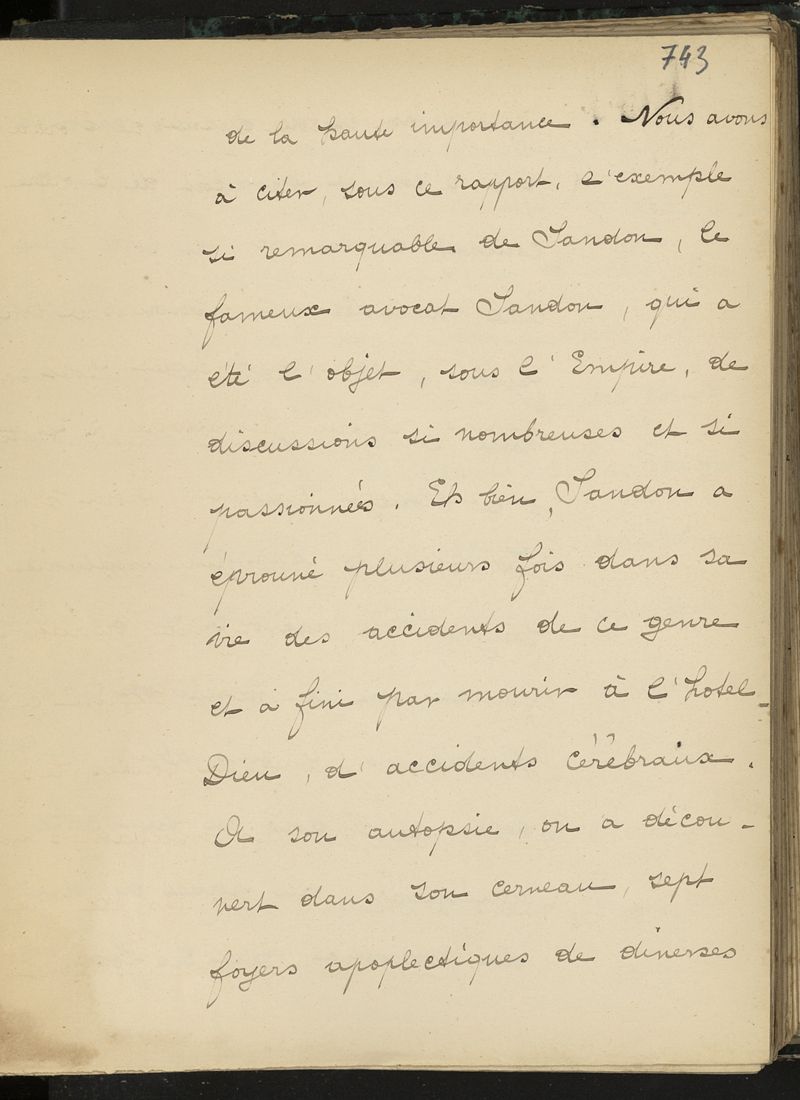 743
de la haute importance. Nous avons
à citer, sous ce rapport, l'exemple
si remarquable de Sandon, le
fameux avocat Sandon, qui a
été l'objet, sous l'Empire, de
discussions si nombreuses et si
passionnées. Eh bien, Sandon a
éprouvé plusieurs fois dans sa
vie des accidents de ce genre
et a fini par mourir à l'hotel-
Dieu, d'accidents cérébraux.
A son autopsie, on a décou-
vert dans son cerveau, sept
foyers apoplectiques de diverses